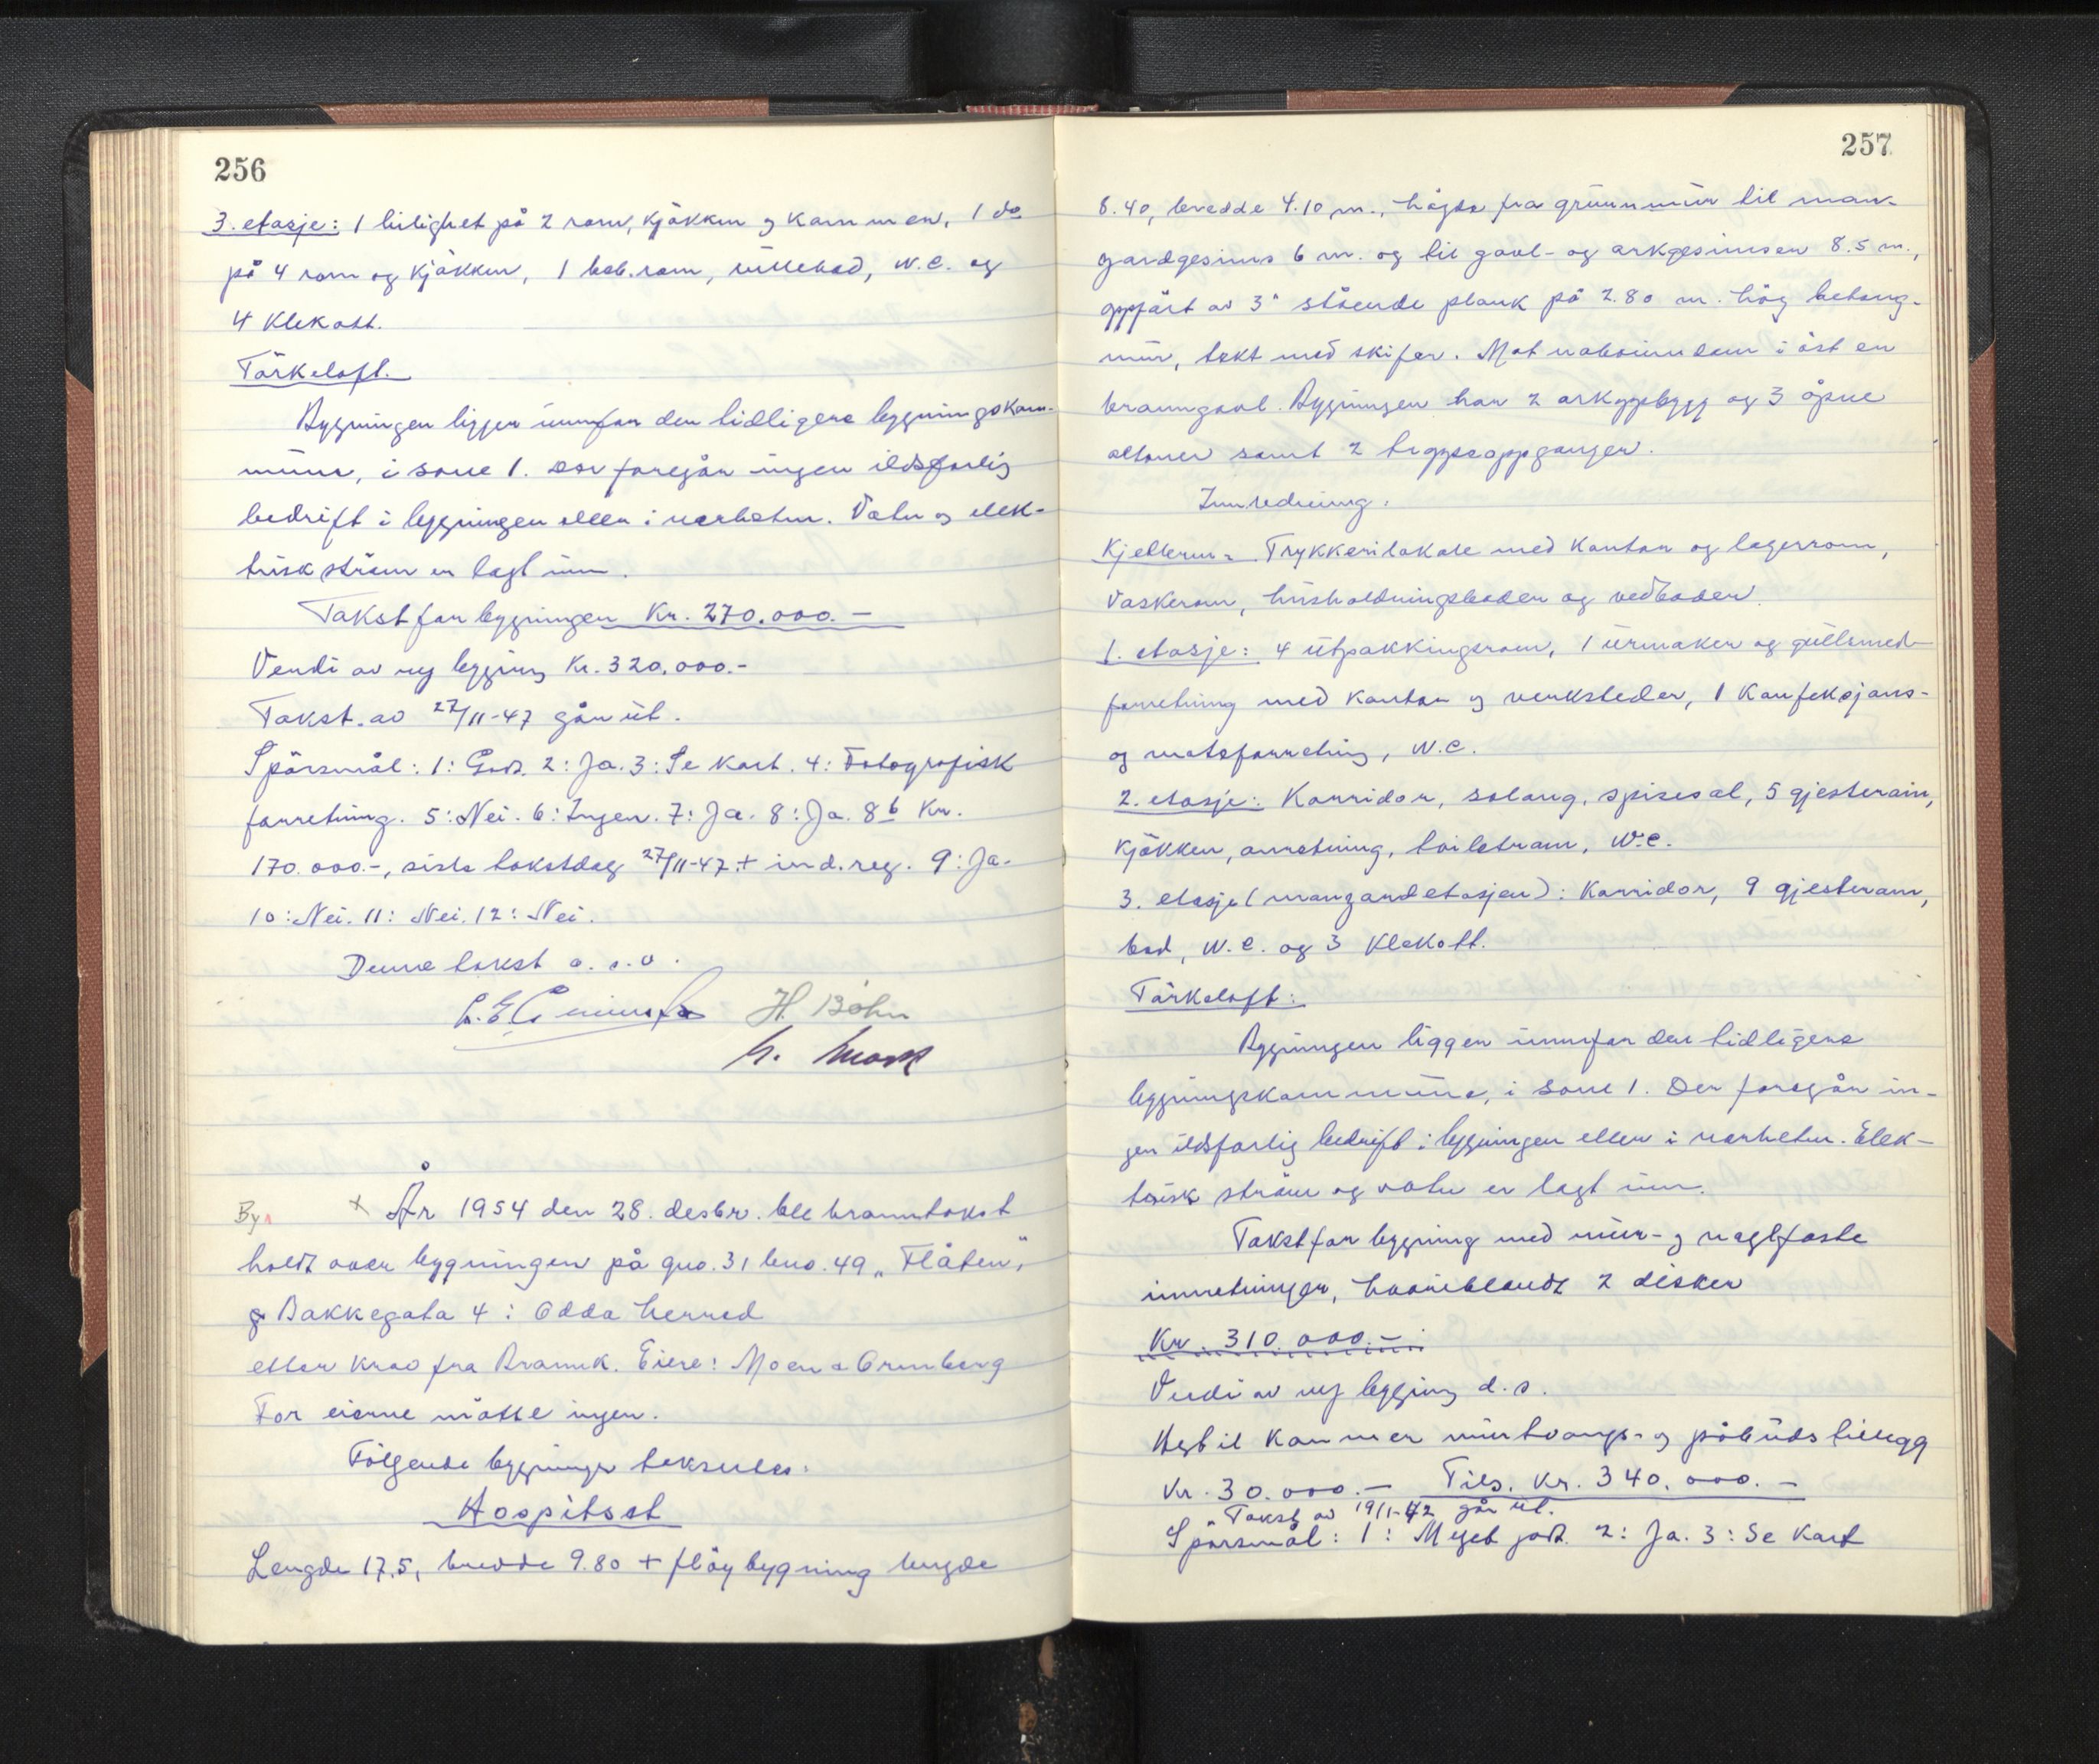 256
3. etasje: 1 leilighet på 2 rom, kjøkken og kammer, 1 do
på 4 rom og kjøkken, 1 bad.rom, rullebod, W.C. og
4 klekott.
Tørkeloft.
Bygningen ligger innfor den tidligere bygningskom-
mune, i sone 1. Der foregår ingen ildsfarlig
bedrift i bygningen eller i nærheten. Vatn og elek-
trisk strøm er lagt inn.
Takst for bygningen Kr. 270.000.-
Verdi av ny bygging Kr. 320.000.-
Takst av 27/11-47 går ut.
Spørsmål: 1: God. 2: Ja. 3: Se kart. 4: Fotografisk
forretning. 5: Nei. 6: Ingen. 7: Ja. 8: Ja. 8b Kr.
170.000.-, siste takstdag 27/11-47 + ind. reg. 9: Ja.
10: Nei. 11: Nei. 12: Nei.
Denne takst o.s.v.
H. Bøhn
By
x År 1954 den 28. desbr. ble branntakst
holdt over bygningen på gno. 31 bno. 49 "Flåten",
Bakkegata 4 i Odda herred
etter krav fra Brannk. Eiere: Moen & Ormberg
For eierne møtte ingen.
Følgende bygninger takseres:
Hospitset
Lengde 17.5, bredde 9.80 + fløybygning lengde
257
8.40, bredde 4.10 m., høgde fra grunnmur til man-
gardgesims 6 m. og til gavl- og arkgesimsen 8.5 m.,
oppført av 3" stående plank på 2.80 m. høg betong-
mur, tekt med skifer. Mot naboeiendom i øst en
branngavl. Bygningen har 2 arkoppbygg og 3 åpne
altaner samt 2 trappeoppganger.
Innredning.
Kjelleren: Trykkerilokale med kontor og lagerrom,
Vaskerom, husholdningsboder og vedboder.
1. etasje: 4 utpakkingsrom, 1 urmaker og gullsmed-
forretning med kontor og verksteder, 1 konfeksjons-
og moteforretning, W.C.
2. etasje: Korridor, salong, spisesal, 5 gjesterom,
kjøkken, anretning, toilettrom, W.C.
3. etasje (mangardetasjen): Korridor, 9 gjesterom,
bad, W.C. og 3 klekott.
Tørkeloft:
Bygningen ligger innfor den tidligere
bygningskommune, i sone 1. Der foregår in-
gen ildsfarlig bedrift i bygningen eller i nærheten. Elek-
trisk strøm og vatn er lagt inn.
Takst for bygning med mur- og naglfaste
innretninger, hvoriblandt 2 disker
Kr. 310.000.-
Verdi av ny bygging d.s.
Hertil kommer murtvangs- og påbudstillegg
Kr. 30.000.- Tils. Kr. 340.000.-
Takst av 19/1-42 går ut.
Spørsmål: 1: Meget god. 2: Ja. 3: Se kart